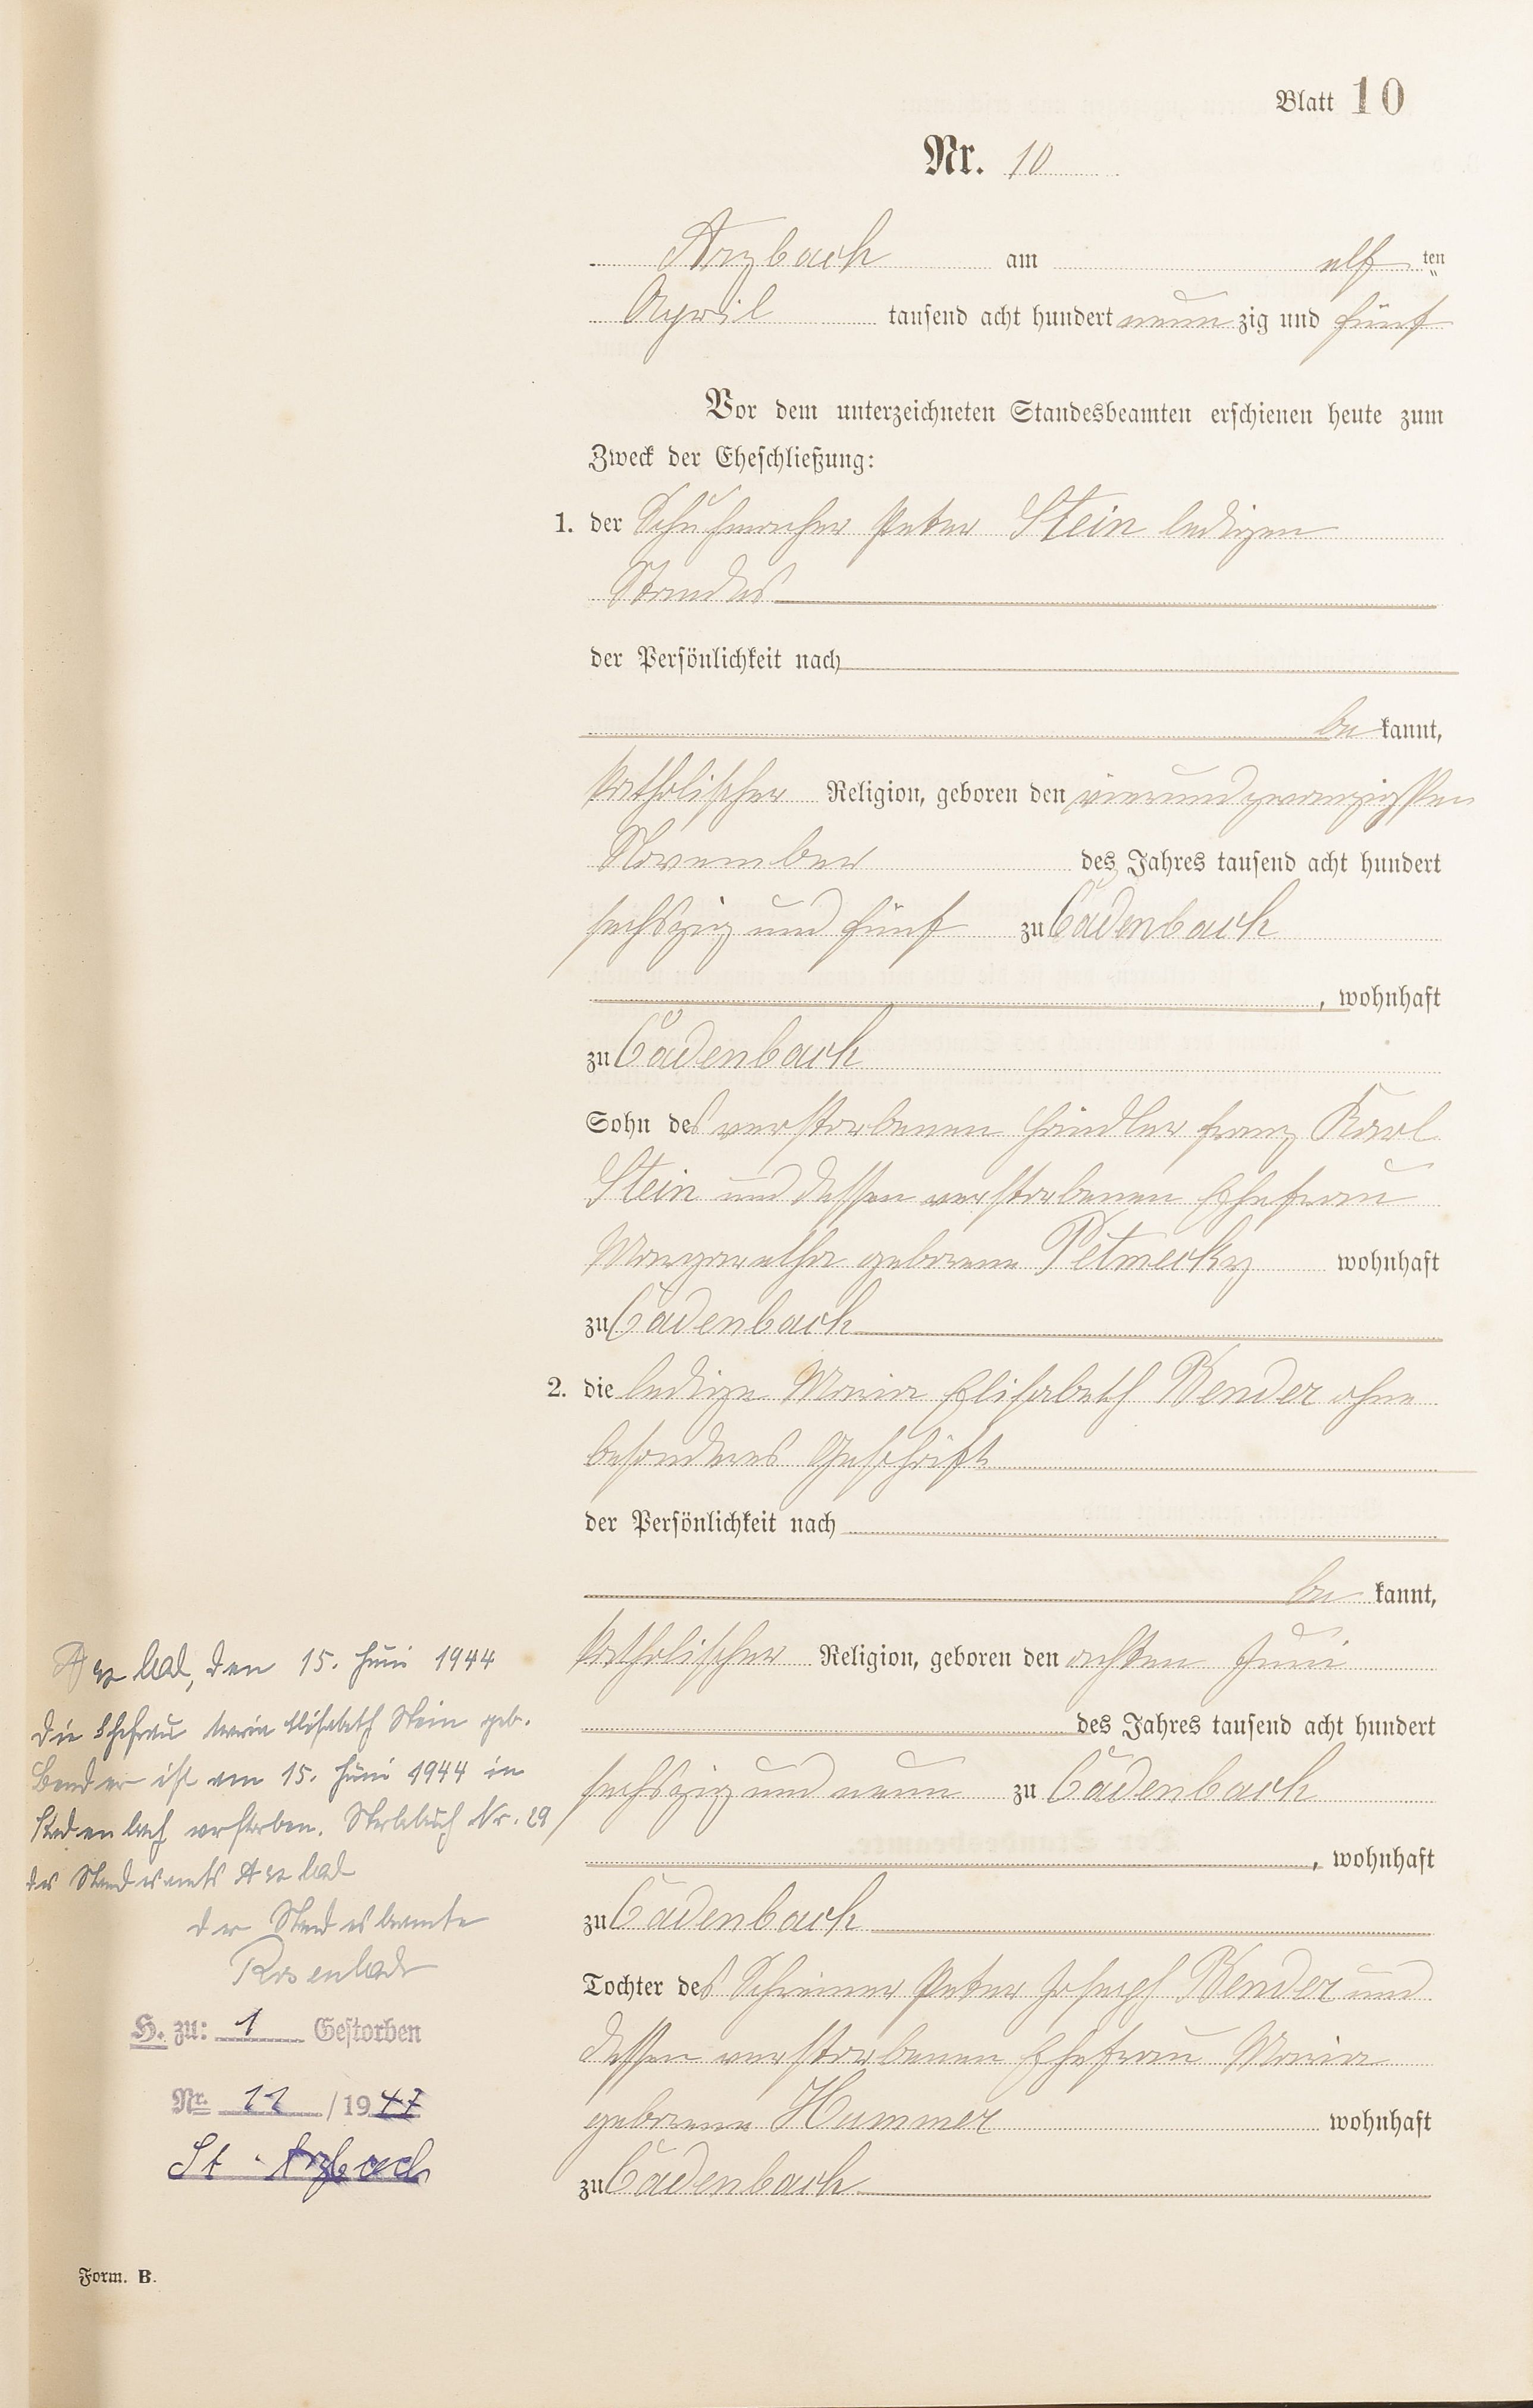 Blatt 10
Nr. 10
Arzbach am elf ten
April tausend acht hundert neun zig und fünf
Vor dem unterzeichneten Standesbeamten erschienen heute zum
Zweck der Eheschließung:
1. der Schuhmacher Peter Stein ledigen
Standes
der Persönlichkeit nach
be kannt,
katholischer Religion, geboren den vierundzwanzigsten
November des Jahres tausend acht hundert
sechszig und fünf zu Cadenbach
, wohnhaft
zu Cadenbach
Sohn des verstorbenen Händler Franz Karl
Stein und dessen verstorbenen Ehefrau
Margaretha geborene Petmecky wohnhaft
zu Cadenbach
2. die ledige Maria Elisabeth Bender ohne
besonderes Geschäft
der Persönlichkeit nach
be kannt,
katholischer Religion, geboren den achten Juni
des Jahres tausend acht hundert
sechszig und neun zu Cadenbach
, wohnhaft
zu Cadenbach
Tochter des Schreiner Peter Joseph Bender und
dessen verstorbenen Ehefrau Maria
geborene Hummer wohnhaft
zu Cadenbach
Arzbach, den 15. Juni 1944
Die Ehefrau Maria Elisabeth Stein geb.
Bender ist am 15. Juni 1944 in
Kadenbach verstorben. Sterbebuch Nr. 29
des Standesamts Arzbach
Der Standesbeamte
Rosenbach
H. zu: 1 Gestorben
Nr. 11 / 1947
St. Arzbach
Form. B.